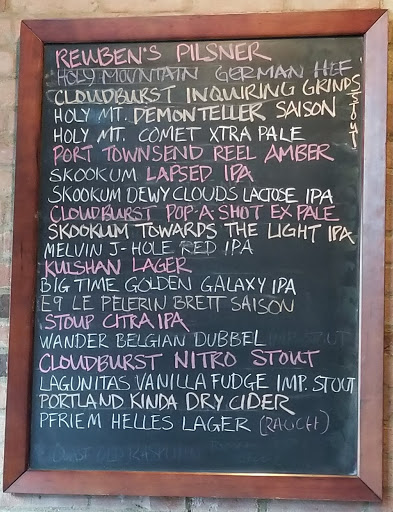 REUBEN'S PILSNER
HOLY MOUNTAIN GERMAN HEF
CLOUDBURST INQUIRING GRINDS STOUT
HOLY MT. DEMONTELLER SAISON
HOLY MT. COMET XTRA PALE
PORT TOWNSEND REEL AMBER
SKOOKUM LAPSED IPA
SKOOKUM DEWY CLOUDS LACTOSE IPA
CLOUDBURST POP-A SHOT EX PALE
SKOOKUM TOWARDS THE LIGHT IPA
MELVIN J-HOLE RED IPA
KULSHAN LAGER
BIG TIME GOLDEN GALAXY IPA
E9 LE PELERIN BRETT SAISON
STOUP CITRA IPA
WANDER BELGIAN DUBBEL
CLOUDBURST NITRO STOUT
LAGUNITAS VANILLA FUDGE IMP. STOUT
PORTLAND KINDA DRY CIDER
PFRIEM HELLES LAGER (RAUCH)